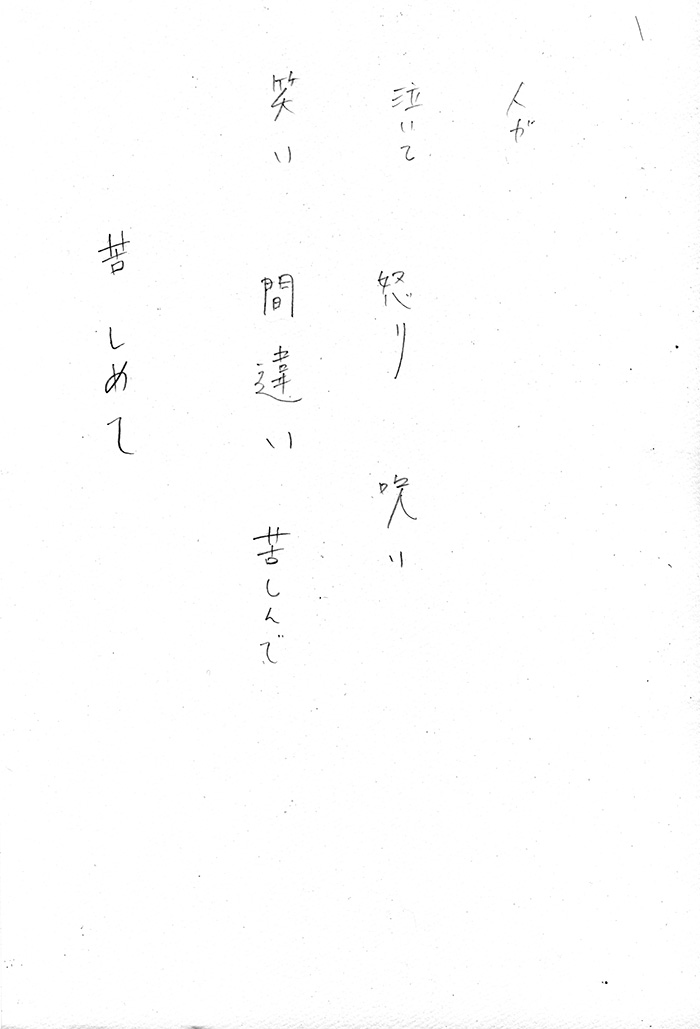 人が
泣いて 怒り 呪い
笑い 間違い 苦しんで
苦しめて